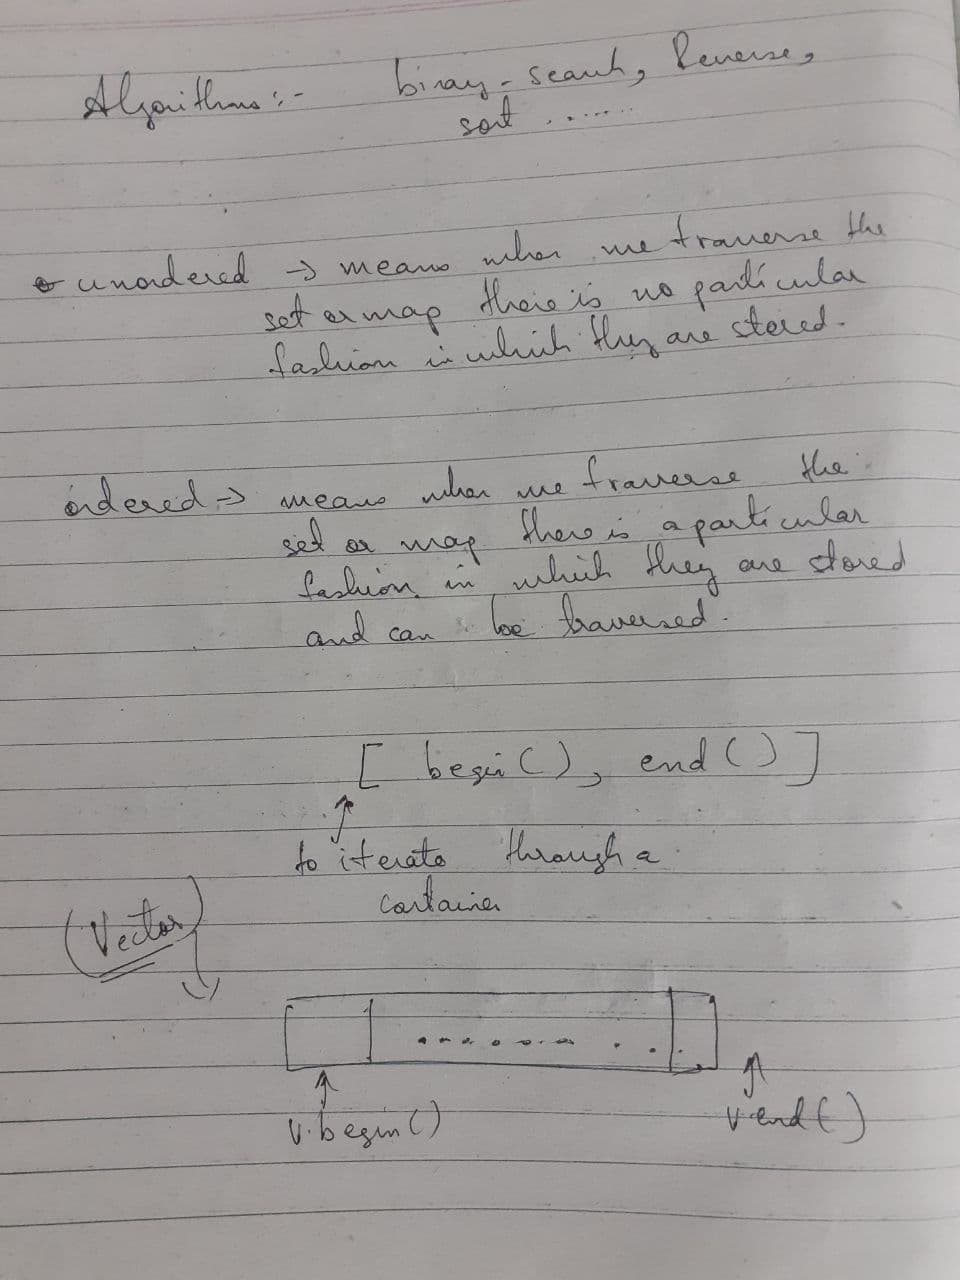 Algorithms :- binary-search, Reverse,
sort .......
unordered → means when we traverse the
set or map there is no particular
fashion in which they are stored.
ordered → means when we traverse the
set or map there is a particular
fashion in which they are stored
and can be traversed.
[ begin(), end() ]
to iterate through a
container
(Vector)
v.begin()
v.end()